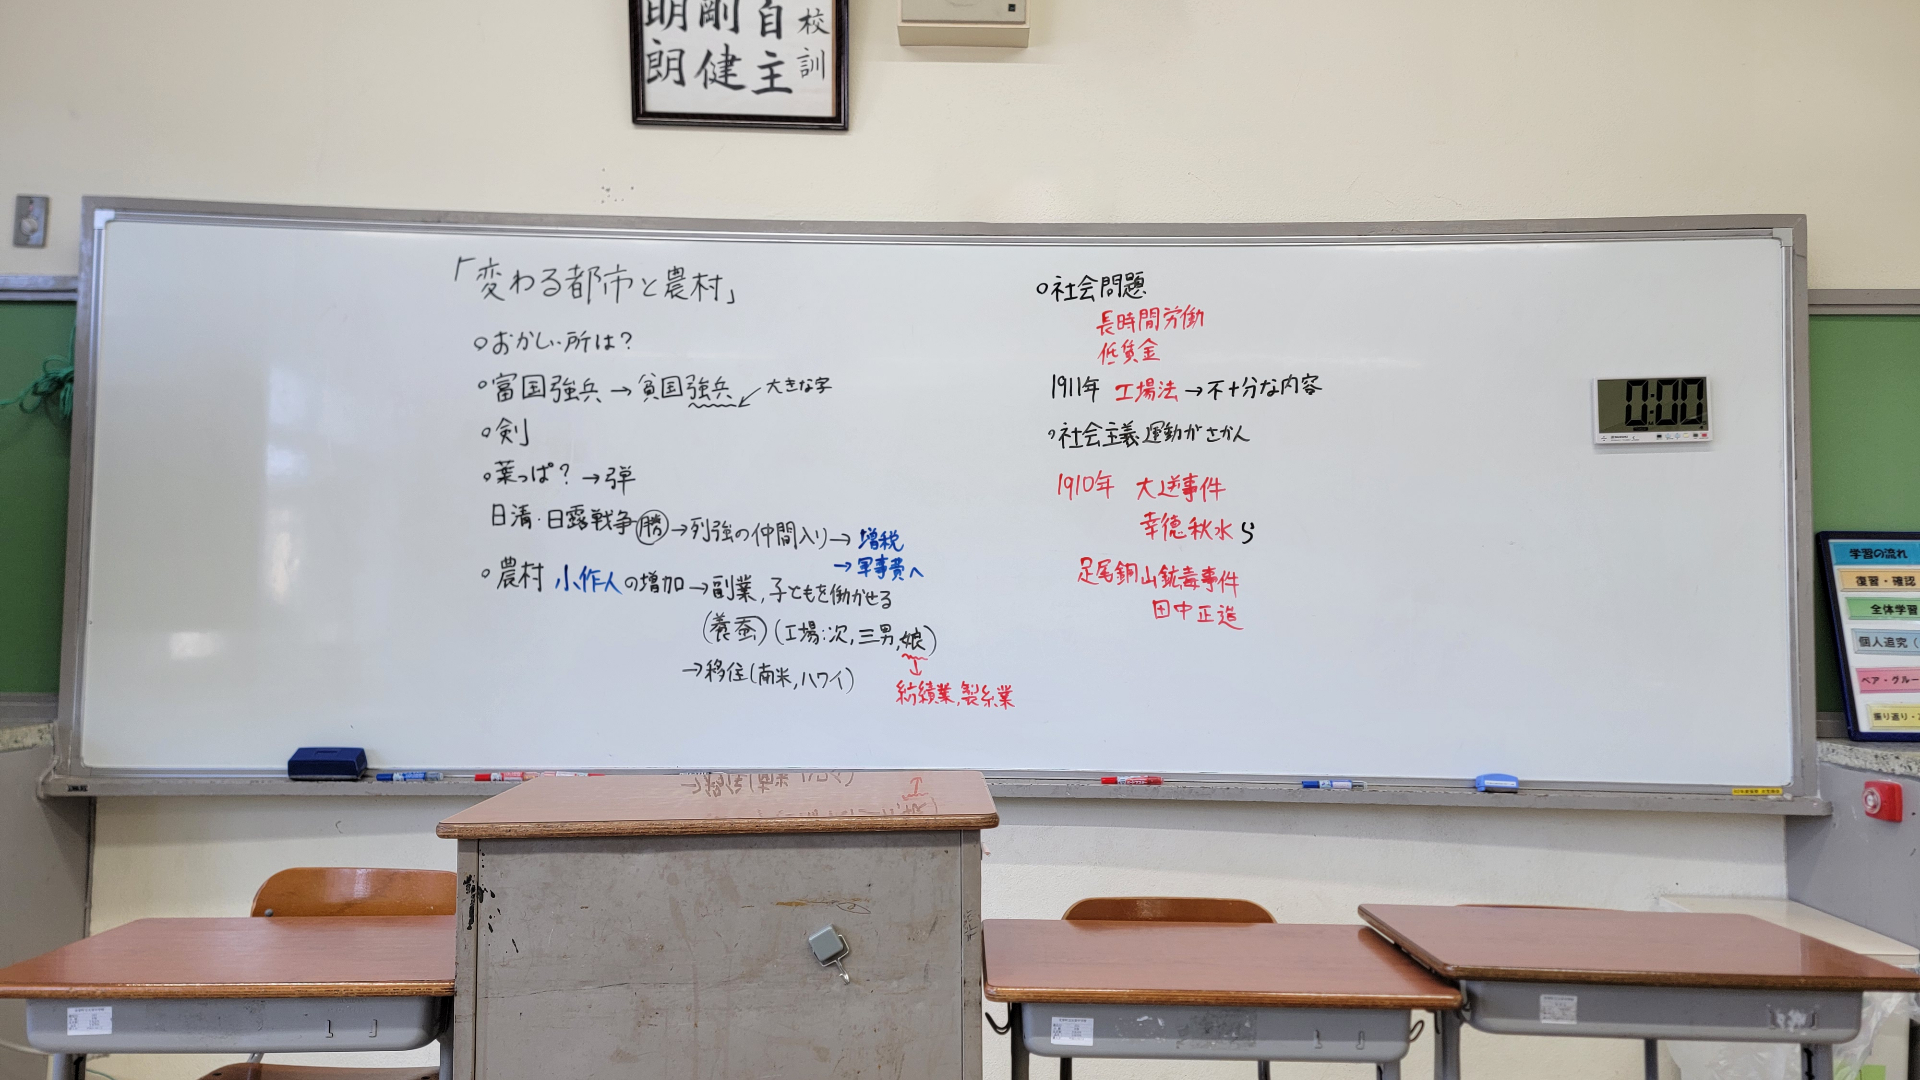 校訓
自主
剛健
明朗
「変わる都市と農村」
○おかしい所は？
○富国強兵→貧国強兵 ↙大きな字
○剣
○葉っぱ？→弾
日清・日露戦争勝→列強の仲間入り→増税
→軍事費へ
○農村 小作人の増加→副業,子どもを働かせる
(養蚕)(工場:次,三男,娘)
→移住(南米,ハワイ)
紡績業,製糸業
○社会問題
長時間労働
低賃金
1911年 工場法→不十分な内容
○社会主義運動がさかん
1910年 大逆事件
幸徳秋水ら
足尾銅山鉱毒事件
田中正造
0:00
学習の流れ
復習・確認
全体学習
個人追究（
ペア・グルー
振り返り・